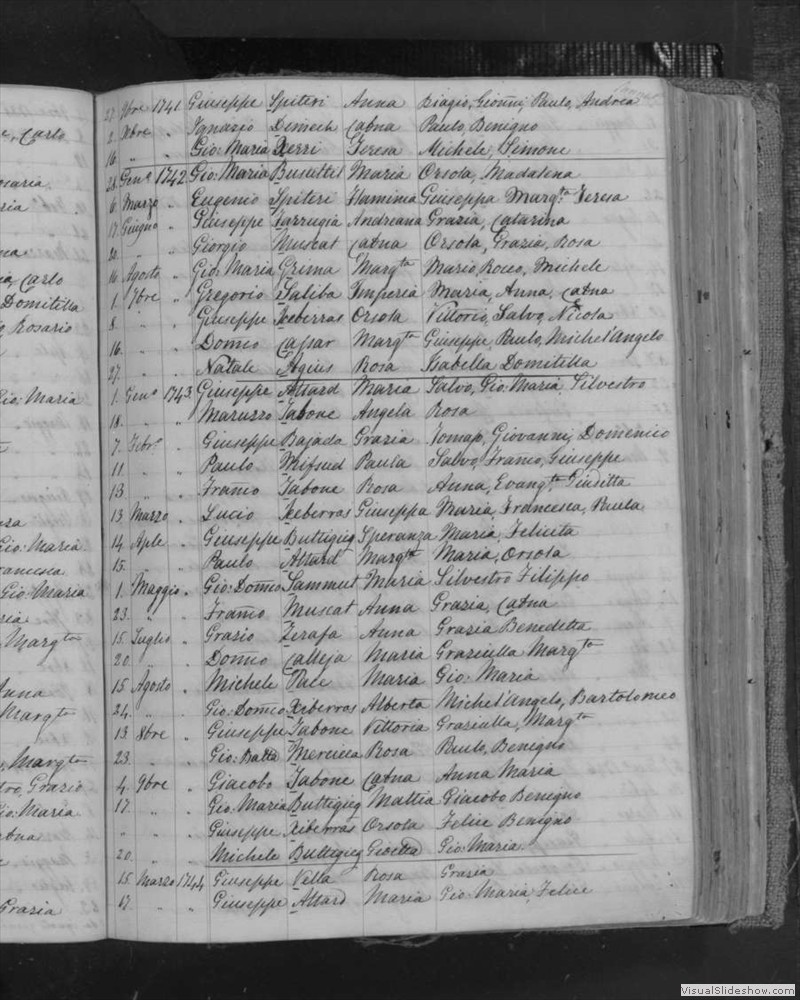 Carlo
27. 9bre 1741. Giuseppe Spiteri Anna Biagio, Gionni, Paulo, Andrea
2. Xbre " Ignazio Demech Catna Paulo, Benigno
16. " " Gio: Maria Xerri Teresa Michele, Simone
28. Genº 1742. Gio: Maria Busuttil Maria Orsola, Madalena
6. Marzo " Eugenio Spiteri Flaminia Giuseppa Margta Teresa
17. Giugno " Giuseppe Farrugia Andreana Grazia, Catarina
20. " Giorgio Muscat Catna Orsola, Grazia, Rosa
16. Agosto " Gio: Maria Grima Margta Mario, Rocco, Michele
1. 7bre " Gregorio Saliba Imperia Maria, Anna, Catna
8. " " Giuseppe Xeberras Orsola Vittorio, Salvo, Nicola
16. " " Domco Cassar Margta Giuseppe, Paulo, Michel'Angelo
27. " " Natale Agius Rosa Isabella Domitilla
1. Genº 1743. Giuseppe Attard Maria Salvo, Gio: Maria, Silvestro
18. " " Maruzzo Tabone Angela Rosa
7. Febrº " Giuseppe Bajada Grazia Tomaso, Giovanni, Domenico
11. " " Paulo Mifsud Paula Salvo, Franco, Giuseppe
13. " " Franco Tabone Rosa Anna, Evangta Giuditta
13. Marzo " Lucio Xeberras Giuseppa Maria, Francesca, Paula
14. Aple " Giuseppe Buttigieg Speranza Maria, Felicita
15. " Paulo Attard Margta Maria, Orsola
1. Maggio " Gio: Domco Sammut Maria Silvestro Filippo
23. " " Franco Muscat Anna Grazia, Catna
15. Luglio " Grazio Zerafa Anna Grazia Benedetta
20. " " Domco Calleja Maria Graziulla Margta
15. Agosto " Michele Pace Maria Gio: Maria
24. " " Gio: Domco Xeberras Alberta Michel'Angelo, Bartolomeo
13. 8bre " Giuseppe Tabone Vittoria Graziulla, Margta
23. " " Gio: Batta Mercieca Rosa Paulo, Benigno
4. 9bre " Giacobo Tabone Catna Anna Maria
17. " " Gio: Maria Buttigieg Mattia Giacobo Benigno
" " " Giuseppe Xiberras Orsola Felice Benigno
20. " " Michele Buttigieg Gioetta Gio: Maria
15. Marzo 1744 Giuseppe Vella Rosa Grazia
17. " " Giuseppe Attard Maria Gio: Maria, Felice
Carlo
Domitilla
Rosario
Gio: Maria
Gio: Maria
Gio Maria
Margta
Anna
Margta
Margta
Grazio
Gio: Maria
Grazia
VisualSlideshow.com